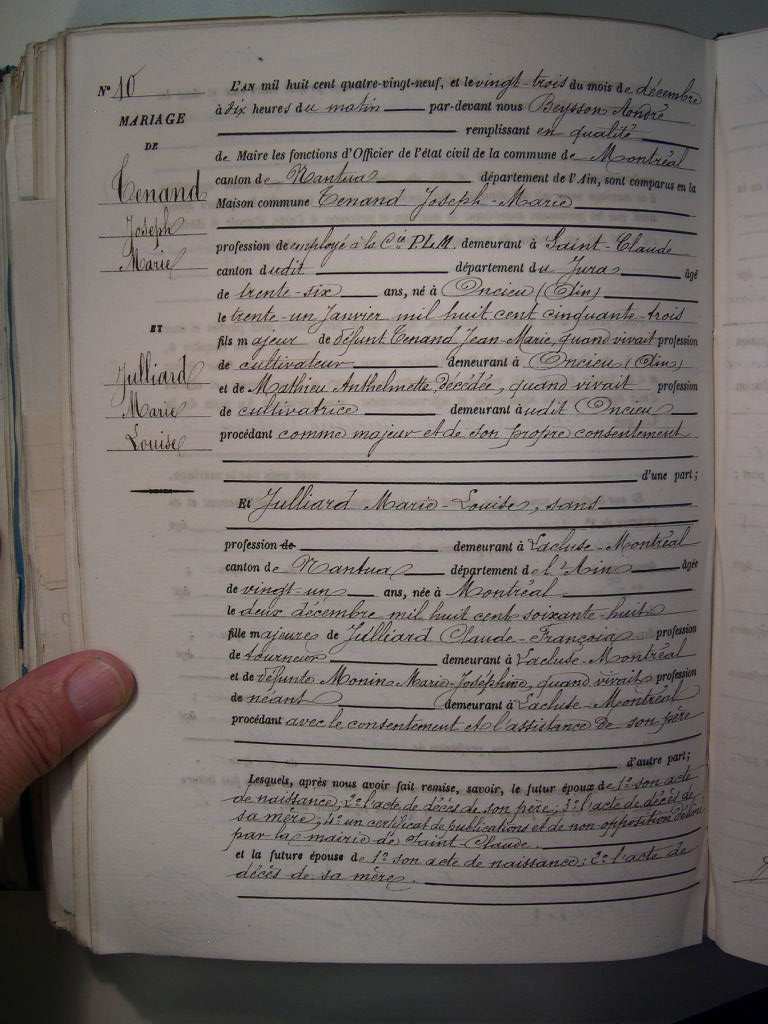 N° 10
MARIAGE
DE
Tenand
Joseph
Marie
ET
Julliard
Marie
Louise
L'AN mil huit cent quatre-vingt-neuf, et le vingt-trois du mois de décembre
à dix heures du matin par-devant nous Beysson André
remplissant en qualité
de Maire les fonctions d'Officier de l'état civil de la commune de Montréal
canton de Nantua département de l'Ain, sont comparus en la
Maison commune Tenand Joseph-Marie
profession de employé à la Cie P.L.M. demeurant à Saint-Claude
canton dudit département du Jura âgé
de trente-six ans, né à Oncieu (Ain)
le trente-un Janvier mil huit cent cinquante-trois
fils majeur de défunt Tenand Jean-Marie, quand vivait profession
de cultivateur demeurant à Oncieu (Ain)
et de Mathieu Anthelmette décédée, quand vivait profession
de cultivatrice demeurant audit Oncieu
procédant comme majeur et de son propre consentement
d'une part;
Et Julliard Marie-Louise, sans
profession de demeurant à Lacluse-Montréal
canton de Nantua département de l'Ain âgée
de vingt-un ans, née à Montréal
le deux décembre mil huit cent soixante-huit
fille majeure de Julliard Claude-François profession
de tourneur demeurant à Lacluse-Montréal
et de défunte Monin Marie-Joséphine, quand vivait profession
de néant demeurant à Lacluse-Montréal
procédant avec le consentement et l'assistance de son père
d'autre part;
Lesquels, après nous avoir fait remise, savoir, le futur époux de 1° son acte
de naissance; 2° l'acte de décès de son père; 3° l'acte de décès de
sa mère; 4° un certificat de publications et de non opposition délivré
par la mairie de Saint-Claude.
et la future épouse de 1° son acte de naissance; 2° l'acte de
décès de sa mère.